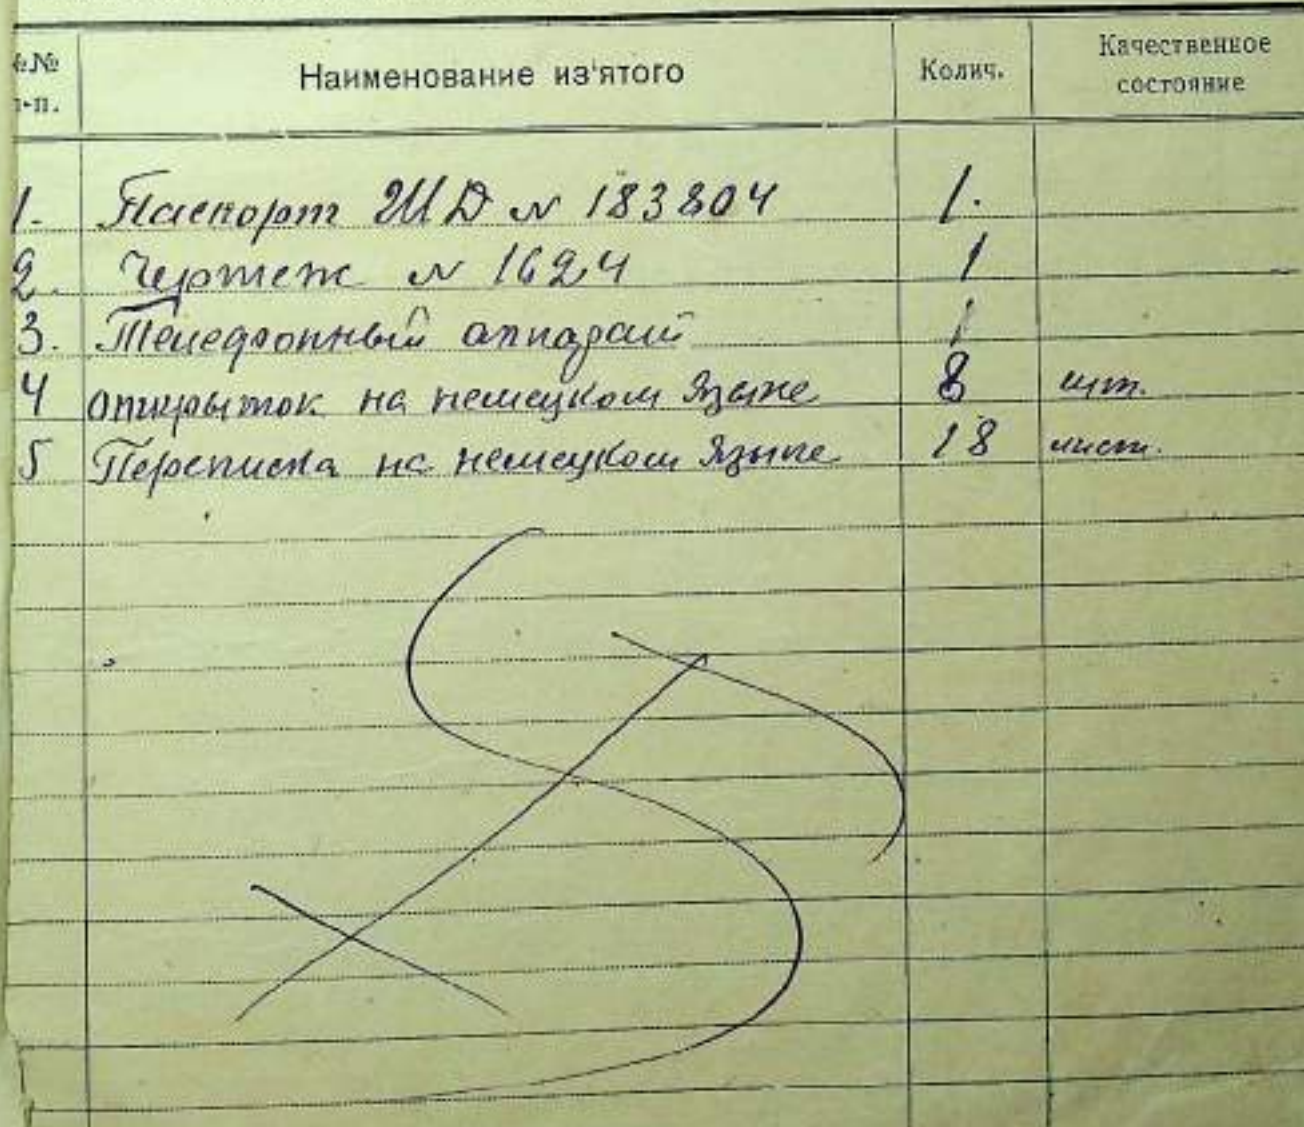 №№ Наименование из'ятого Колич. Качественное
п-п. состояние
1. Паспорт ШД № 183804 1.
2. Чертеж № 1624 1
3. Телефонный аппарат 1
4 открыток на немецком языке 8 шт.
5 Переписка на немецком языке 18 лист.